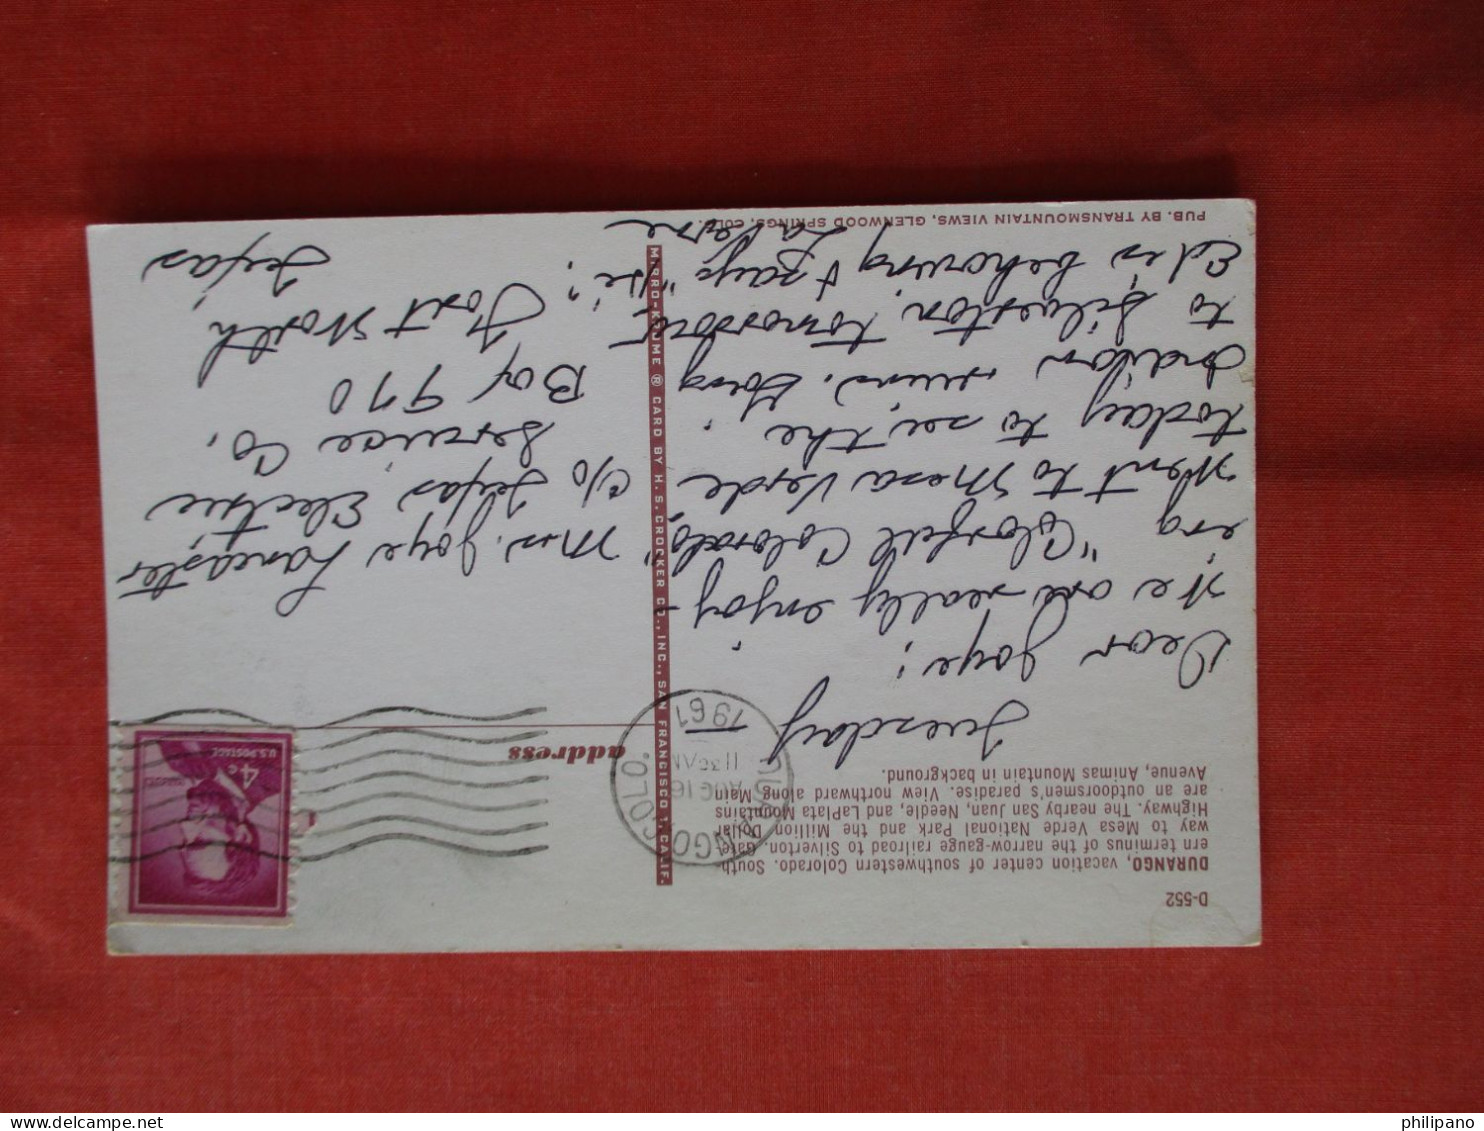 D-552
DURANGO, vacation center of southwestern Colorado. South
ern terminus of the narrow-gauge railroad to Silverton. Gate
way to Mesa Verde National Park and the Million Dollar
Highway. The nearby San Juan, Needle, and LaPlata Mountains
are an outdoorsmen's paradise. View northward along Main
Avenue, Animas Mountain in background.
Tuesday
Dear Joye;
We are really enjoy-
ing "Colorful Colorado,"
Went to Mesa Verde
today to see the
Indian ruins. Going
to Silverton tomorrow.
Ed is behaving & says "Hi".
LaVerne
PUB. BY TRANSMOUNTAIN VIEWS, GLENWOOD SPRINGS, COLO.
MIRRO-KROME ® CARD BY H. S. CROCKER CO., INC., SAN FRANCISCO 1, CALIF.
DURANGO, COLO.
AUG 16
11 30 AM
1961
address
4c
U.S. POSTAGE
Mrs. Joye Lancaster
c/o Texas Electric
Service Co.
Box 970
Fort Worth
Texas
philipano